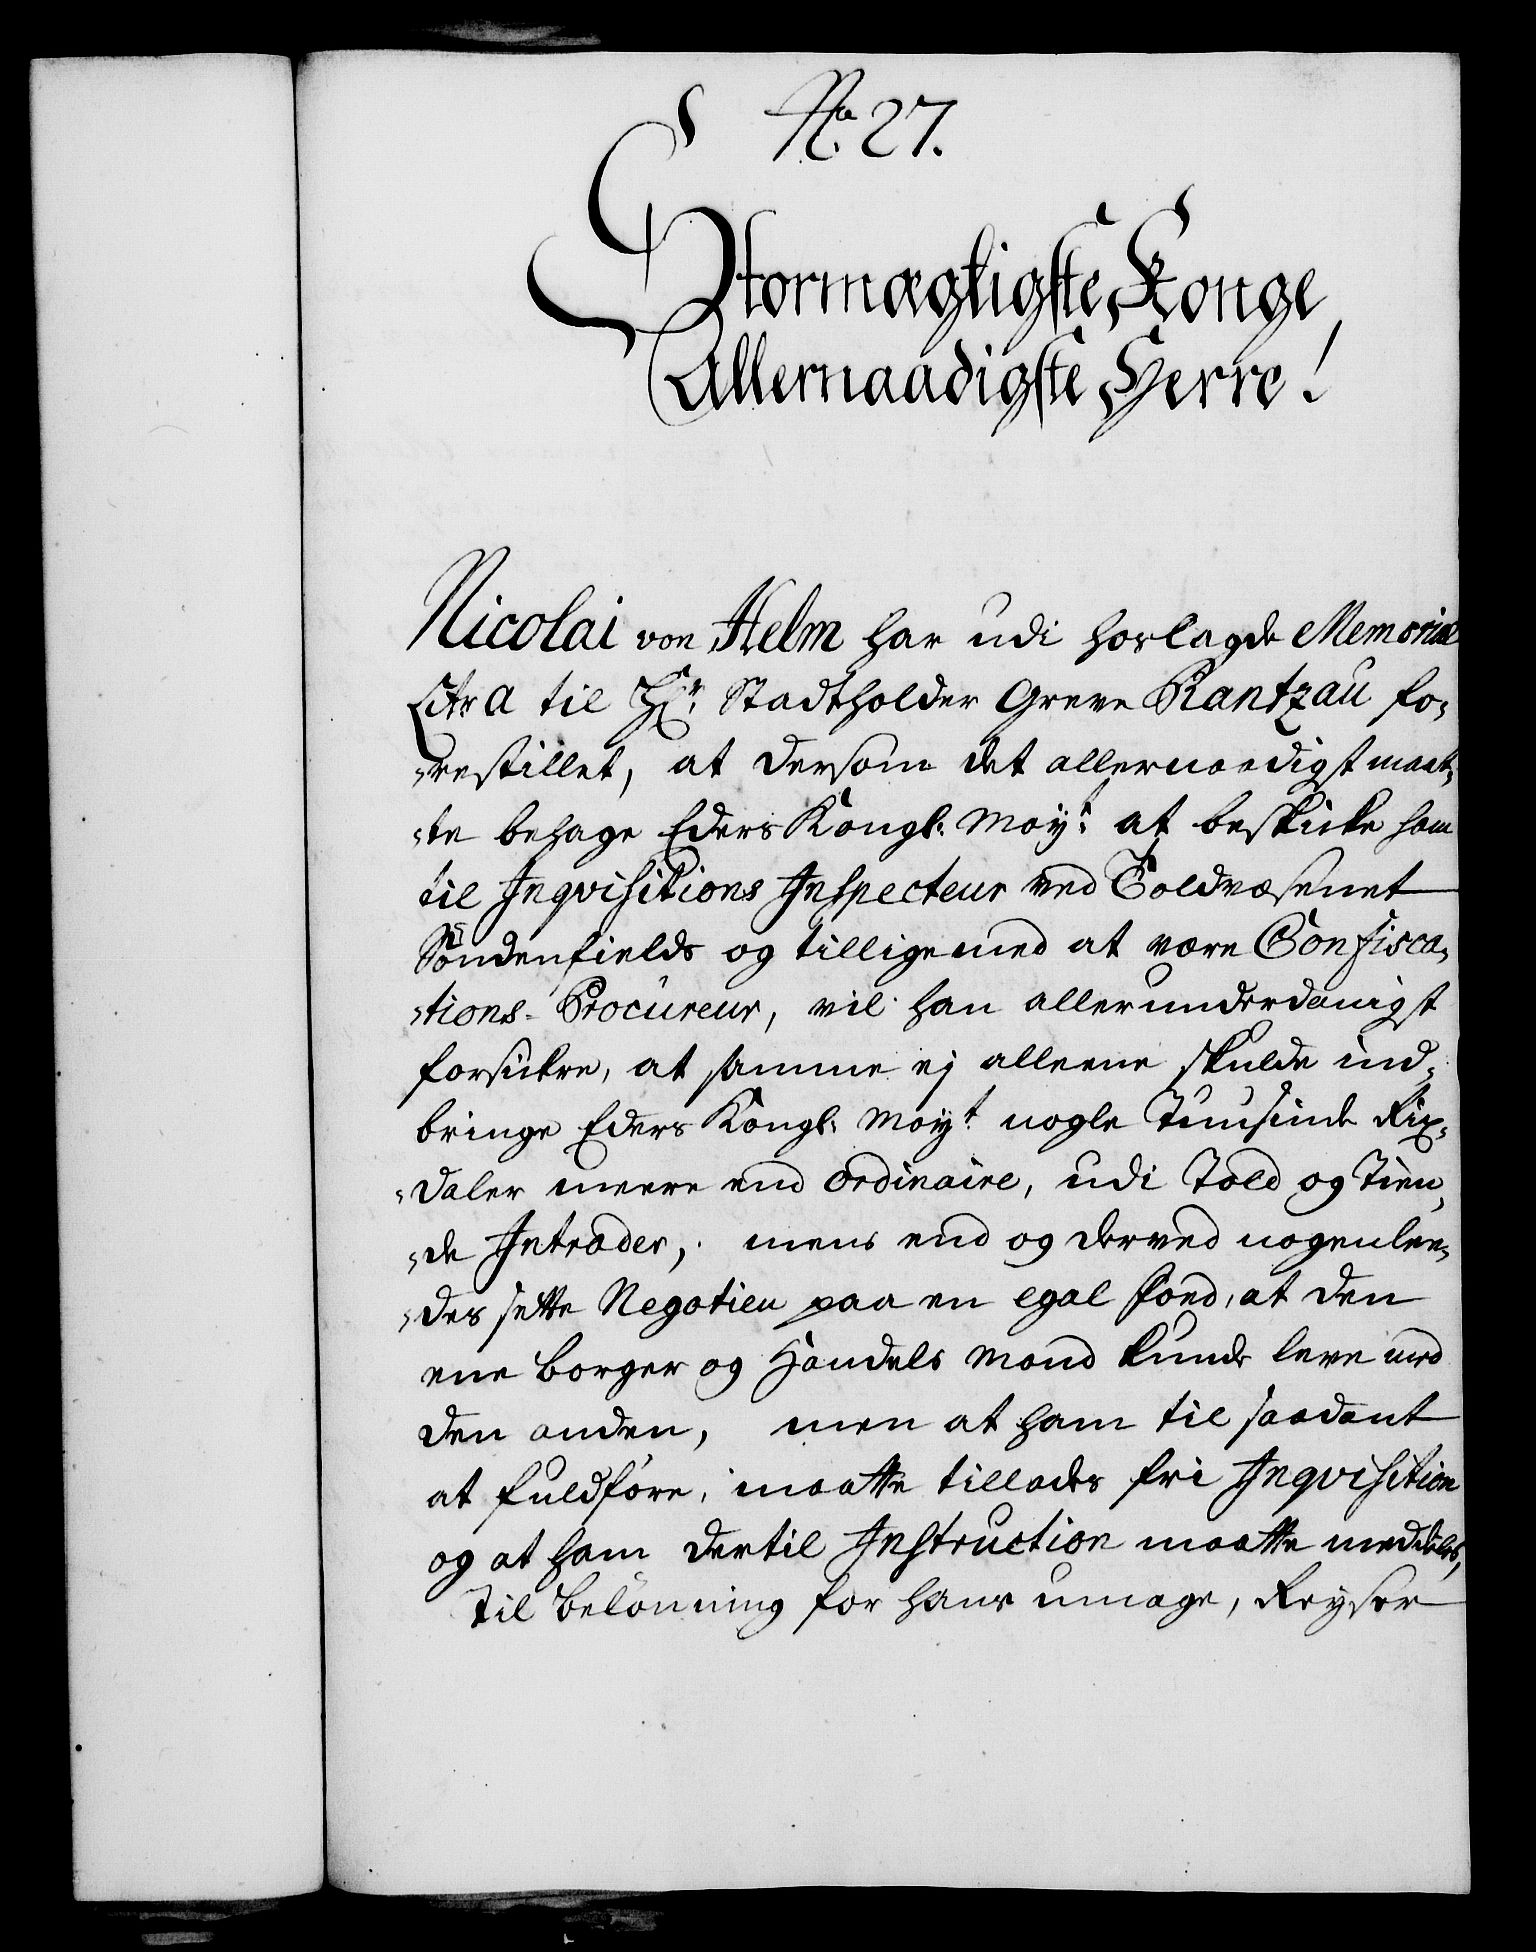 No. 27.
Stormægtigste Konge
Allernaadigste Herre!
Nicolai von Helm har udi hoslagde Memorial
Litr a til Hr. Stadtholder Greve Rantzau fo-
-restillet, at dersom det allernaadigst maat-
-te behage Eders Kongl: Mayt: at beskicke ham
til Inqvisitions Inspecteur ved Toldvæsenet
Söndenfields og tilligemed at være Confisca-
-tions-Procureur, vil han allerunderdanigst
forsickre, at samme ej alleene skulde ind-
bringe Eders Kongl: Mayt nogle Tuusinde Rix-
-daler meere end ordinaire, udi Told og Tien-
-de Intrader, mens end og derved nogenlee-
-des sette Negotien paa en egal Fond, at den
ene borger og Handels Mand kunde leve med
den anden, men at ham til saadant
at fuldföre, maatte tillades fri Inqvisition
og at ham dertil Instruction maatte meddeles,
til belönning for hans umage, Reyser